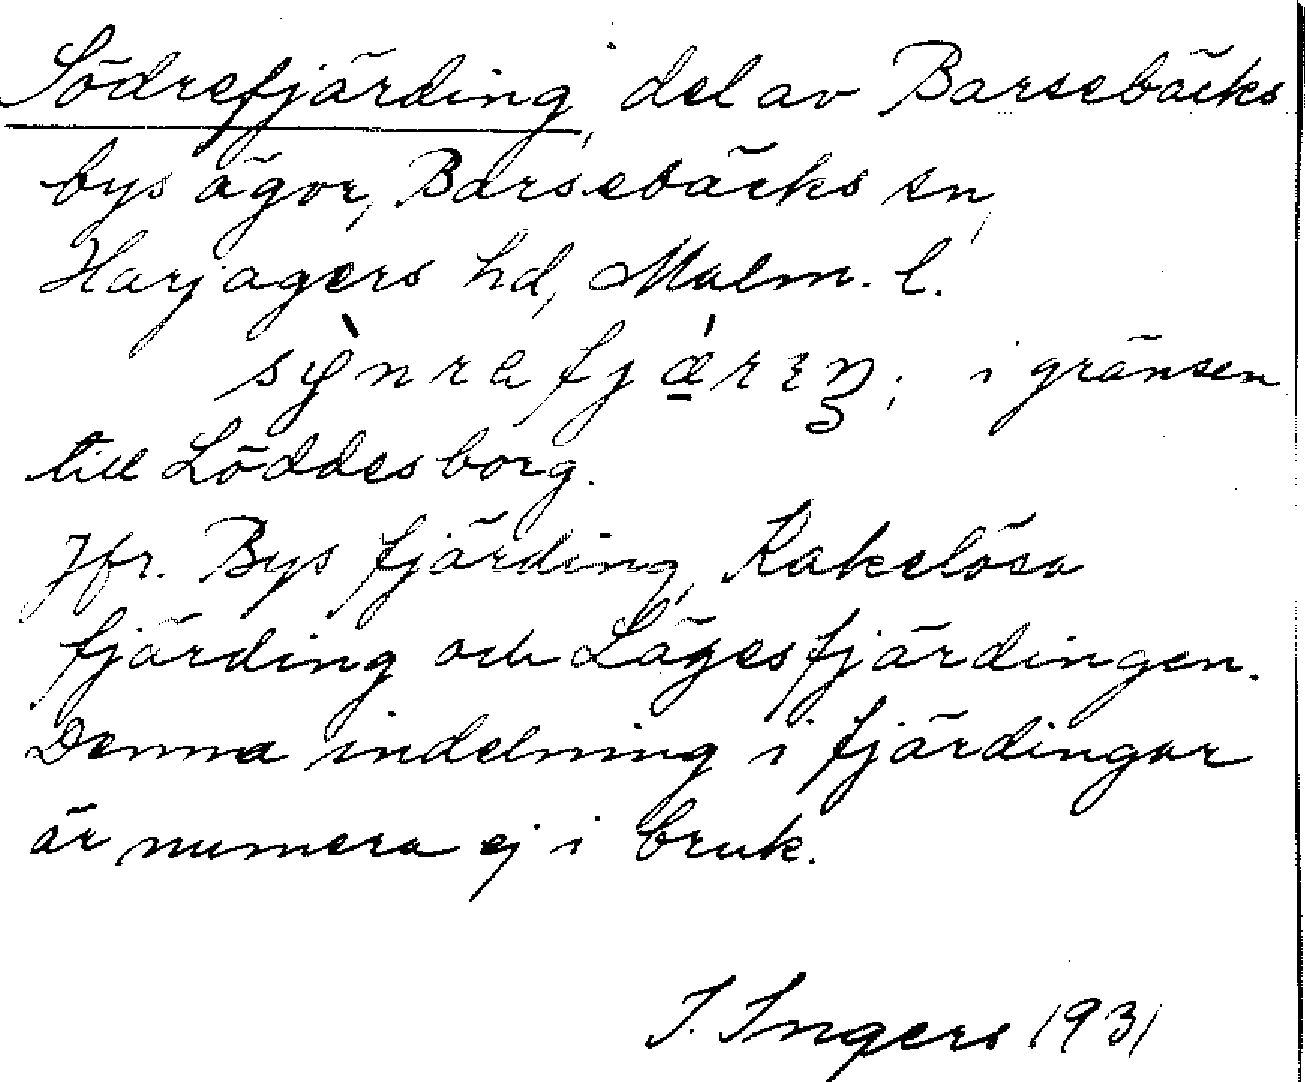 Södrefjärding, del av Barsebäcks
bys ägor, Barsebäcks sn,
Harjagers hd, Malm. l.
i gränsen
till Löddesborg.
Jfr. Bys fjärding, Kakelösa
fjärding och Lägesfjärdingen.
Denna indelning i fjärdingar
är numera ej i bruk.
I. Ingers 1931